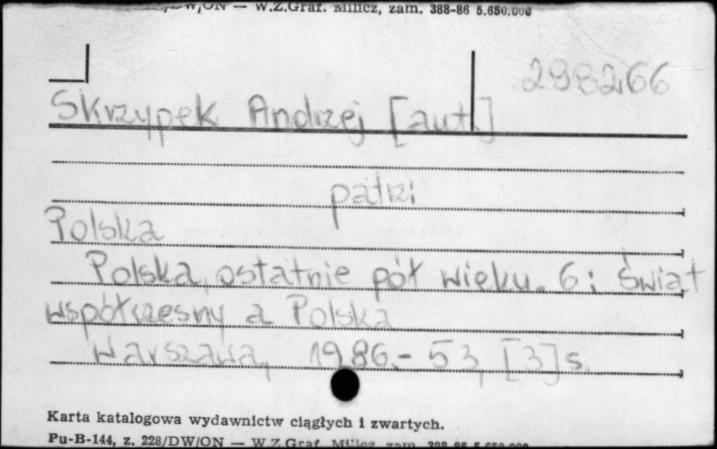 W/ON — W.Z.Graf. Milicz, zam. 388-86 5.650.000
298266
Skrzypek Andrzej [aut.]
patrz:
Polska
Polska, ostatnie pół wieku. 6: Świat
współczesny a Polska
Warszawa, 1986.- 53, [3] s.
Karta katalogowa wydawnictw ciągłych i zwartych.
Pu-B-144, z. 228/DW/ON — W.Z.Graf. Milicz, zam. 388-86 5.650.000